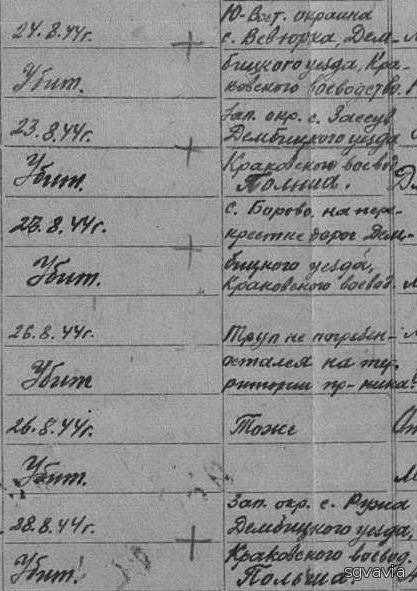 24.8.44г.
Убит.
23.8.44г
Убит.
23.8.44г.
Убит.
26.8.44г.
Убит
26.8.44г.
Убит.
28.8.44г.
Убит.
Ю-Вост. окраина
с. Вевюрха, Дем-
бицкого уезда, Кра-
ковского воеводство.
Зап. окр. с. Зассув
Дембицкого уезда
Краковского воевод.
Польша.
с. Борово, на пере-
крестке дорог Дем-
бицкого уезда,
Краковского воевод.
Труп не погребен-
остался на тер.
ритории пр-ника.
Тоже
Зап. окр. с. Рузиа
Дембицкого уезда,
Краковского воевод.
Польша.
sgvavia